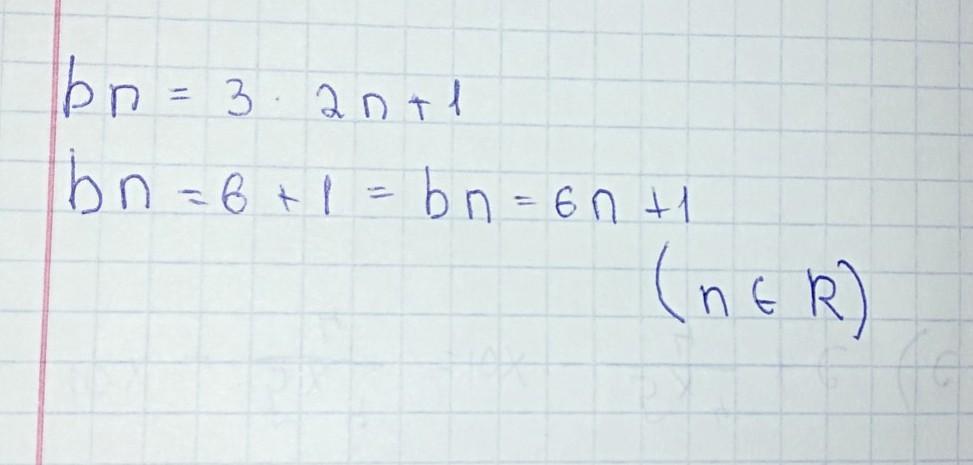 bn = 3 · 2n + 1
bn = 6 + 1 = bn = 6n + 1
(n ∈ R)